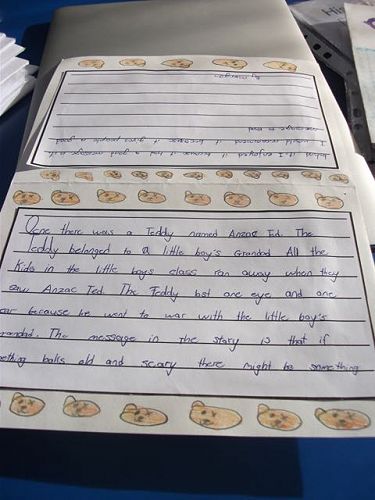 Once there was a Teddy named Anzac Ted. The
Teddy belonged to a little boy's Grandad All the
Kids in the little boys class ran away when they
saw Anzac Ted. The Teddy lost one eye and one
ear because he went to war with the little boy's
randad. The message in the story is that if
ething looks old and scary there might be something
behind it. I enjoyed it because it had a good message
I would recommend it because it gives people a good
message to read
By